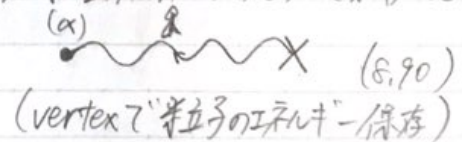 (α)
q
(8,90)
(vertexで粒子のエネルギー保存)